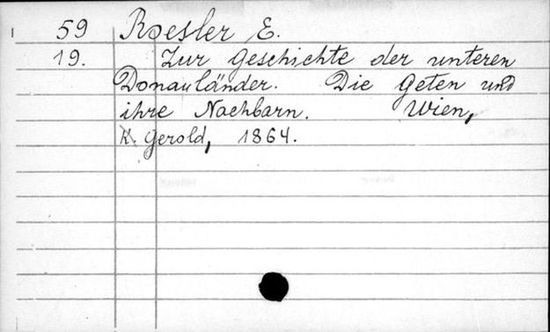 59 Roesler E.
19. Zur Geschichte der unteren
Donauländer. Die Geten und
ihre Nachbarn. Wien,
K. Gerold, 1864.